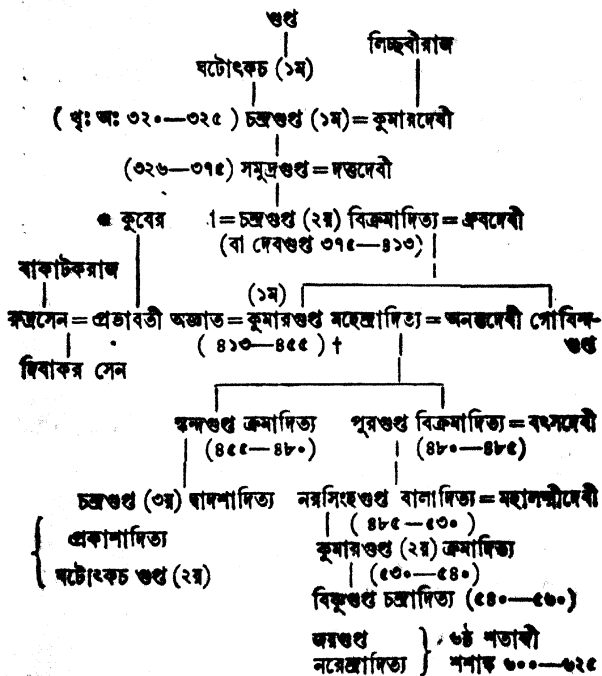 গুপ্ত
লিচ্ছবীরাজ
ঘটোৎকচ (১ম)
( খৃঃ অঃ ৩২০—৩২৫ ) চন্দ্রগুপ্ত (১ম) = কুমারদেবী
(৩২৬—৩৭৫) সমুদ্রগুপ্ত = দত্তদেবী
কুবের ১ = চন্দ্রগুপ্ত (২য়) বিক্রমাদিত্য = ধ্রুবদেবী
(বা দেবগুপ্ত ৩৭৫—৪১৩)
বাকাটকরাজ
(১ম)
রুদ্রসেন = প্রভাবতী অজ্ঞাত = কুমারগুপ্ত মহেন্দ্রাদিত্য = অনন্তদেবী গোবিন্দ-
( ৪১৩—৪৫৫ ) † গুপ্ত
দিবাকর সেন
স্কন্দগুপ্ত ক্রমাদিত্য পুরগুপ্ত বিক্রমাদিত্য = বৎসদেবী
(৪৫৫—৪৮০) (৪৮০—৪৮৫)
চন্দ্রগুপ্ত (৩য়) দ্বাদশাদিত্য নরসিংহগুপ্ত বালাদিত্য = মহালক্ষ্মীদেবী
( ৪৮৫—৫৩০ )
প্রকাশাদিত্য কুমারগুপ্ত (২য়) ক্রমাদিত্য
ঘটোৎকচ গুপ্ত (২য়) (৫৩০—৫৪০)
বিষ্ণুগুপ্ত চন্দ্রাদিত্য (৫৪০—৫৬০)
জয়গুপ্ত ৬ষ্ঠ শতাব্দী
নরেন্দ্রাদিত্য শশাঙ্ক ৬০০—৬২৫